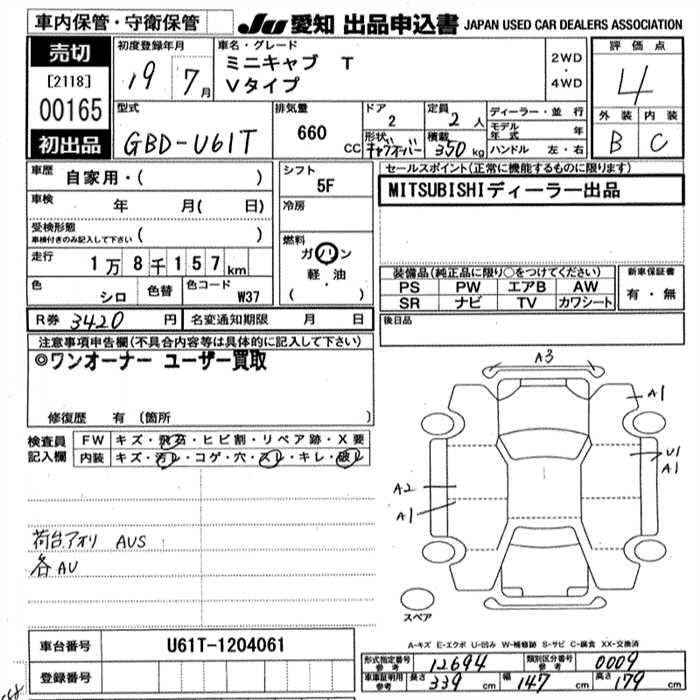 車内保管・守衛保管
JU 愛知 出品申込書 JAPAN USED CAR DEALERS ASSOCIATION
売切
[2118]
00165
初出品
初度登録年月
19 7月
車名・グレード
ミニキャブ T
Vタイプ
2WD
・
4WD
評価点
4
外装 内装
B C
型式
GBD-U61T
排気量
660 CC
ドア
2
定員
2 人
形状
キャブオーバー
積載
350 kg
ディーラー・並行
モデル年式 年
ハンドル 左・右
車歴
自家用・( )
車検
年 月( 日)
受検形態
車検付きのみ記入して下さい ( )
走行
1万8千157km
色
シロ
色替
色コード
W37
シフト
5F
冷房
燃料
ガソリン
軽・油
( )
セールスポイント(正常に機能するものに限ります)
MITSUBISHIディーラー出品
装備品(純正品に限り○をつけてください)
PS PW エアB AW
SR ナビ TV カワシート
新車保証書
有・無
R券 3420 円
名変通知期限 月 日
後日品
注意事項申告欄(不具合内容等は具体的に記入して下さい)
◎ワンオーナー ユーザー買取
修復歴 有 (箇所 )
検査員
記入欄
FW キズ・飛石・ヒビ割・リペア跡・X要
内装 キズ・汚レ・コゲ・穴・スレ・キレ・破レ
荷台アオリ AUS
各AU
A3
A1
U1
A1
A2
A1
スペア
A-キズ E-エクボ U-凹み W-補修跡 S-サビ C-腐食 XX-交換済
車台番号 U61T-1204061
登録番号
形式指定番号
参考
12694
類別区分番号
参考
0009
車庫証明用
参考
長さ 339 cm 幅 147 cm 高さ 179 cm